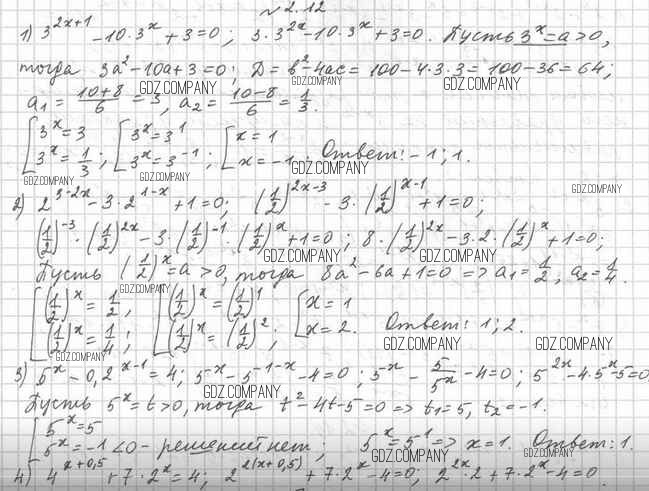 № 2.12
1) 3^{2x+1} - 10·3^x + 3 = 0; 3·3^{2x} - 10·3^x + 3 = 0. Пусть 3^x = a > 0,
тогда 3a² - 10a + 3 = 0; D = b² - 4ac = 100 - 4·3·3 = 100 - 36 = 64;
GDZ.COMPANY GDZ.COMPANY GDZ.COMPANY
a₁ = (10+8)/6 = 3, a₂ = (10-8)/6 = 1/3.
[3^x = 3 [3^x = 3^1 [x = 1
3^x = 1/3; 3^x = 3^{-1}; x = -1. Ответ: -1; 1.
GDZ.COMPANY GDZ.COMPANY GDZ.COMPANY GDZ.COMPANY
2) 2^{3-2x} - 3·2^{1-x} + 1 = 0; (1/2)^{2x-3} - 3·(1/2)^{x-1} + 1 = 0;
(1/2)^{-3}·(1/2)^{2x} - 3·(1/2)^{-1}·(1/2)^x + 1 = 0; 8·(1/2)^{2x} - 3·2·(1/2)^x + 1 = 0;
GDZ.COMPANY GDZ.COMPANY GDZ.COMPANY
Пусть (1/2)^x = a > 0, тогда 8a² - 6a + 1 = 0 => a₁ = 1/2, a₂ = 1/4.
GDZ.COMPANY
[(1/2)^x = 1/2 [(1/2)^x = (1/2)^1 [x = 1
(1/2)^x = 1/4; (1/2)^x = (1/2)^2; x = 2. Ответ: 1; 2.
GDZ.COMPANY GDZ.COMPANY GDZ.COMPANY
3) 5^x - 0,2^{x-1} = 4; 5^x - 5^{1-x} - 4 = 0; 5^x - 5/5^x - 4 = 0; 5^{2x} - 4·5^x - 5 = 0
GDZ.COMPANY
Пусть 5^x = t > 0, тогда t² - 4t - 5 = 0 => t₁ = 5, t₂ = -1.
[5^x = 5
5^x = -1 < 0 - решений нет; 5^x = 5^1 => x = 1. Ответ: 1.
GDZ.COMPANY GDZ.COMPANY GDZ.COMPANY
4) 4^{x+0,5} + 7·2^x = 4; 2^{2(x+0,5)} + 7·2^x - 4 = 0; 2^{2x}·2 + 7·2^x - 4 = 0.